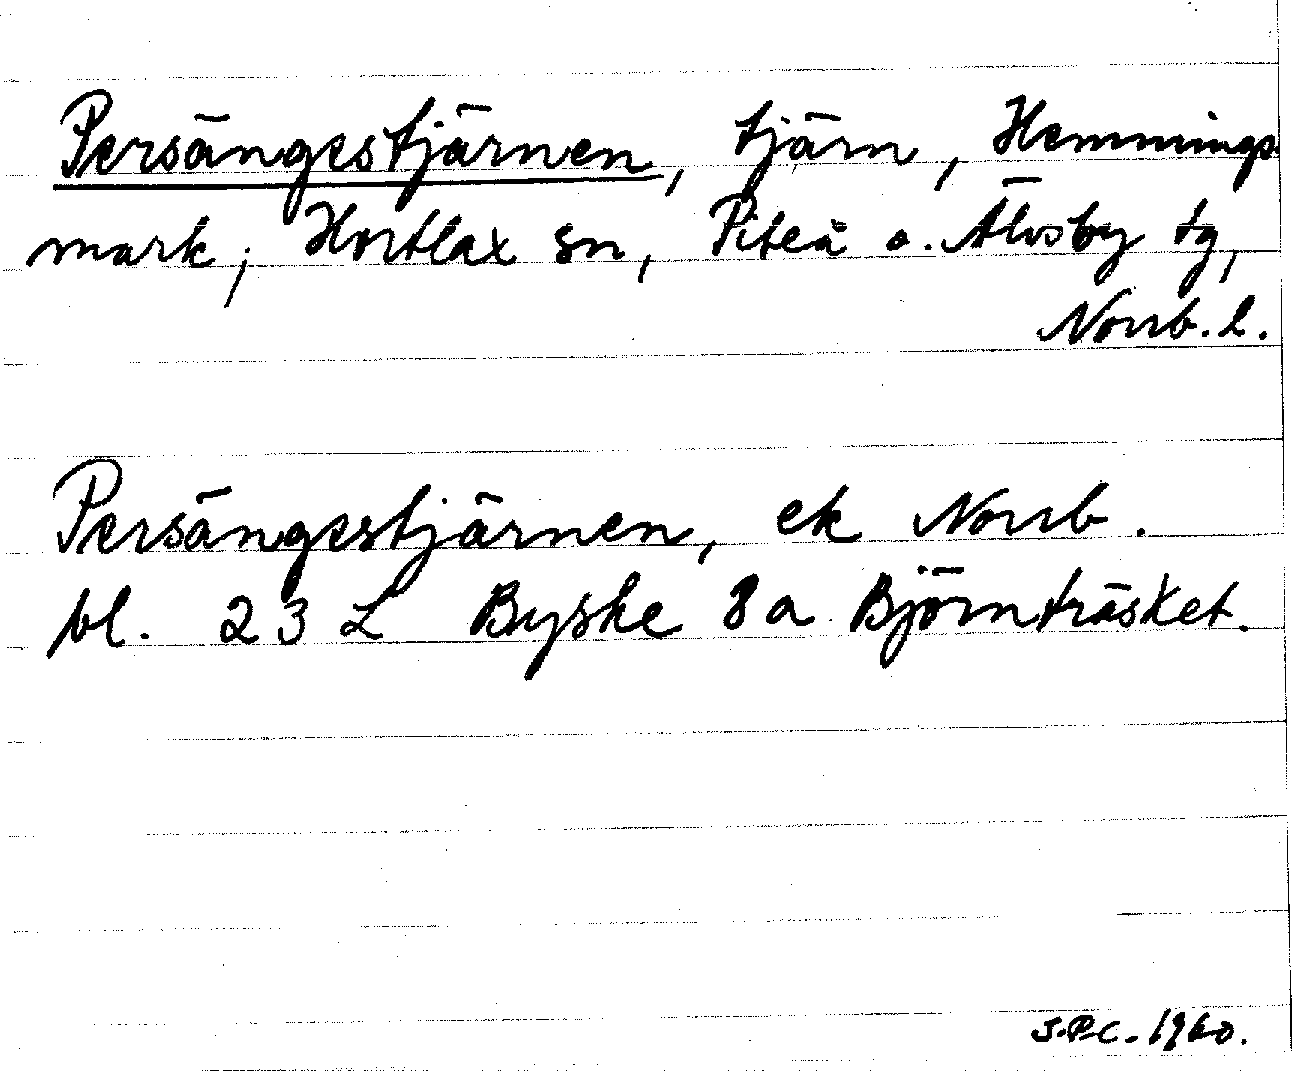 Persängestjärnen, tjärn, Hemmings-
mark, Hortlax sn, Piteå o. Älvsby tg,
Norrb. l.
Persängestjärnen, ek Norrb.
bl. 23 L Byske 8a Björnträsket.
J.P.C. 1960.